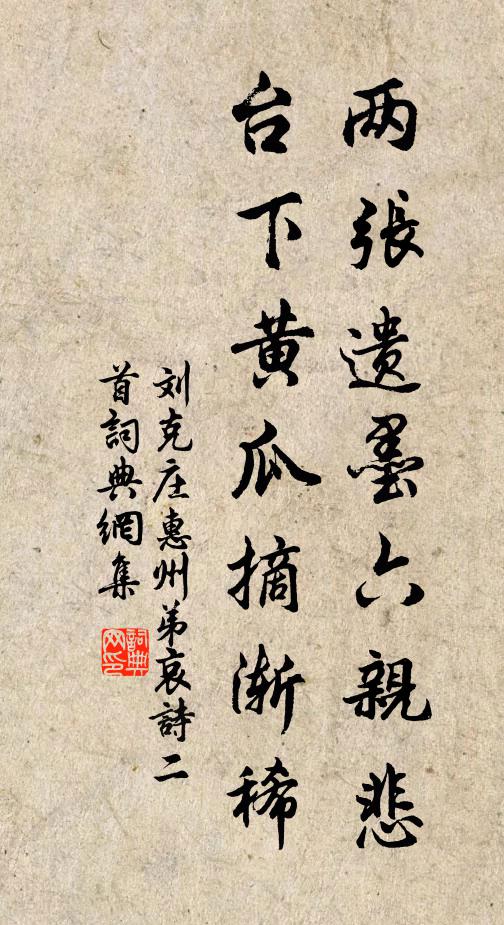 两張遺墨六親悲
台下黄瓜摘渐稀
刘克庄惠州弟哀詩二
首詞典網集
詞典
网印